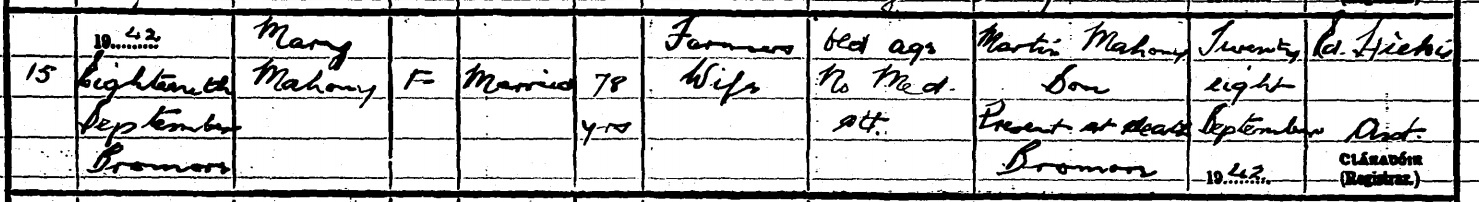 15
1942
Eighteenth
September
Bromore
Mary
Mahony
F
Married
78
yrs
Farmers
Wife
Old age
No Med.
att.
Martin Mahony
Son
Present at death
Bromore
Twenty
eight
September
1942
Ed. Hickie
Asst.
CLÁRADÓIR
(Registrar.)